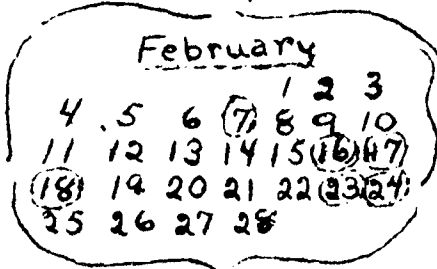 February
1 2 3
4 5 6 7 8 9 10
11 12 13 14 15 16 17
18 19 20 21 22 23 24
25 26 27 28